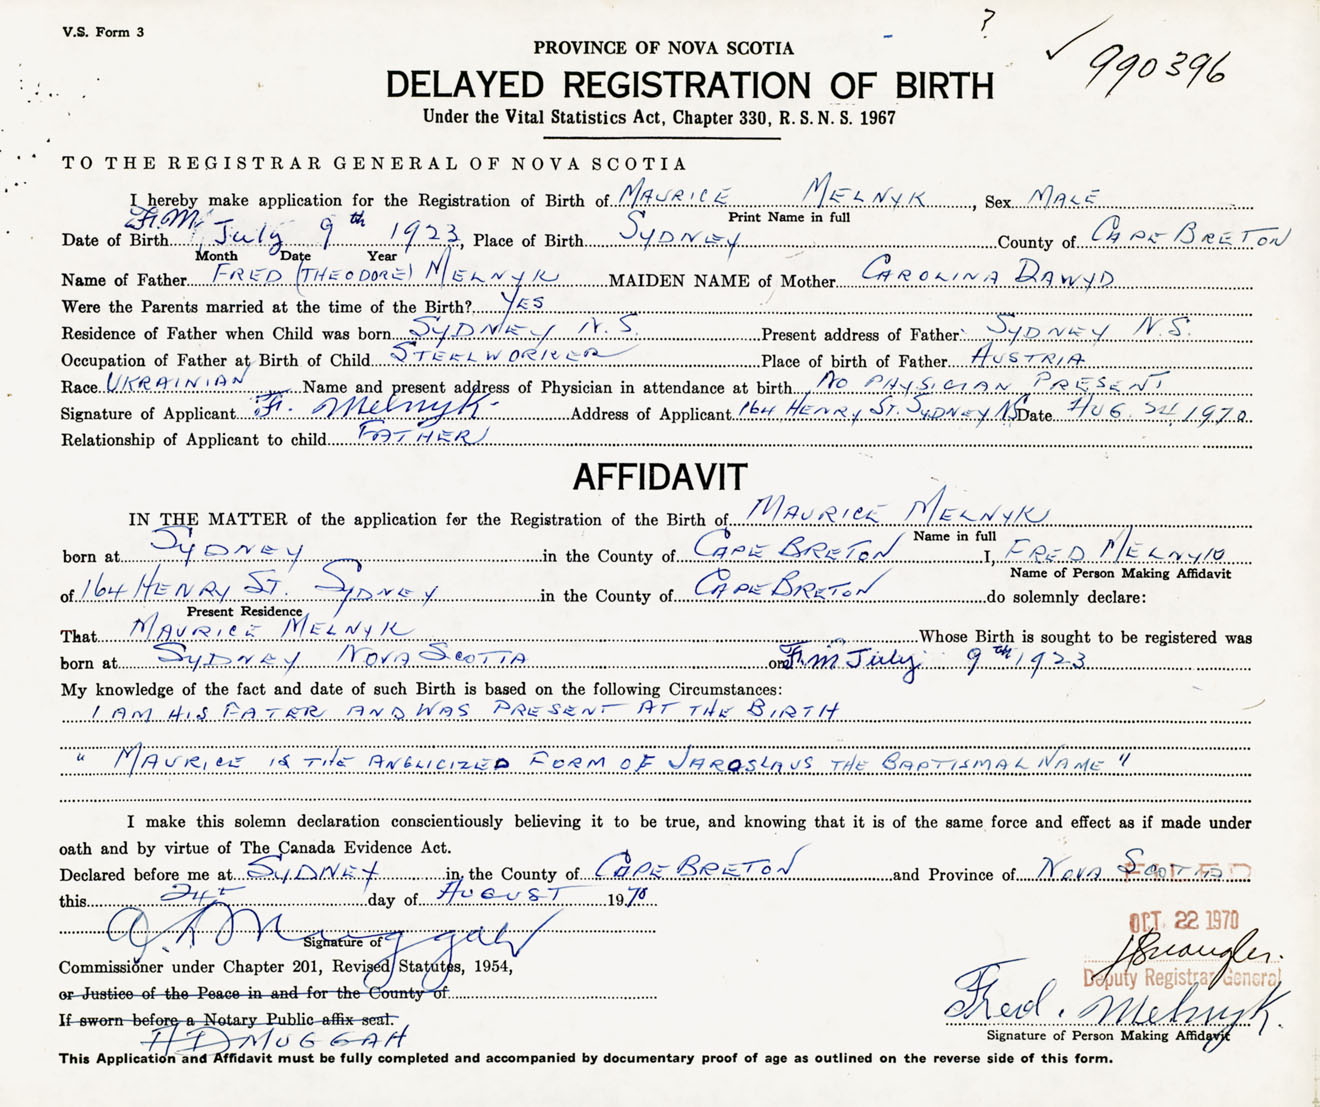 V.S. Form 3
?
✓ 990396
PROVINCE OF NOVA SCOTIA
DELAYED REGISTRATION OF BIRTH
Under the Vital Statistics Act, Chapter 330, R. S. N. S. 1967
TO THE REGISTRAR GENERAL OF NOVA SCOTIA
I hereby make application for the Registration of Birth of MAURICE MELNYK, Sex MALE
Print Name in full
F.M.
Date of Birth July 9th 1923, Place of Birth SYDNEY County of CAPE BRETON
Month Date Year
Name of Father FRED (THEODORE) MELNYK MAIDEN NAME of Mother CAROLINA DAWYD
Were the Parents married at the time of the Birth? YES
Residence of Father when Child was born SYDNEY N.S. Present address of Father SYDNEY N.S.
Occupation of Father at Birth of Child STEELWORKER Place of birth of Father AUSTRIA
Race UKRAINIAN Name and present address of Physician in attendance at birth NO PHYSICIAN PRESENT
Signature of Applicant F. Melnyk Address of Applicant 164 HENRY ST. SYDNEY NS Date AUG. 24 1970
Relationship of Applicant to child FATHER
AFFIDAVIT
IN THE MATTER of the application for the Registration of the Birth of MAURICE MELNYK
Name in full
born at SYDNEY in the County of CAPE BRETON I, FRED MELNYK
Name of Person Making Affidavit
of 164 HENRY ST. SYDNEY in the County of CAPE BRETON do solemnly declare:
Present Residence
That MAURICE MELNYK Whose Birth is sought to be registered was
born at SYDNEY NOVA SCOTIA on F.M July 9th 1923
My knowledge of the fact and date of such Birth is based on the following Circumstances:
I AM HIS FATER AND WAS PRESENT AT THE BIRTH
" MAURICE IS THE ANGLICIZED FORM OF JAROSLAUS THE BAPTISMAL NAME "
I make this solemn declaration conscientiously believing it to be true, and knowing that it is of the same force and effect as if made under
oath and by virtue of The Canada Evidence Act.
Declared before me at SYDNEY in the County of CAPE BRETON and Province of NOVA SCOTIA
FILED
this 24th day of AUGUST 1970
OCT 22 1970
Signature of
Commissioner under Chapter 201, Revised Statutes, 1954,
Deputy Registrar General
or Justice of the Peace in and for the County of
Fred. Melnyk.
If sworn before a Notary Public affix seal.
Signature of Person Making Affidavit
A D MUGGAH
This Application and Affidavit must be fully completed and accompanied by documentary proof of age as outlined on the reverse side of this form.